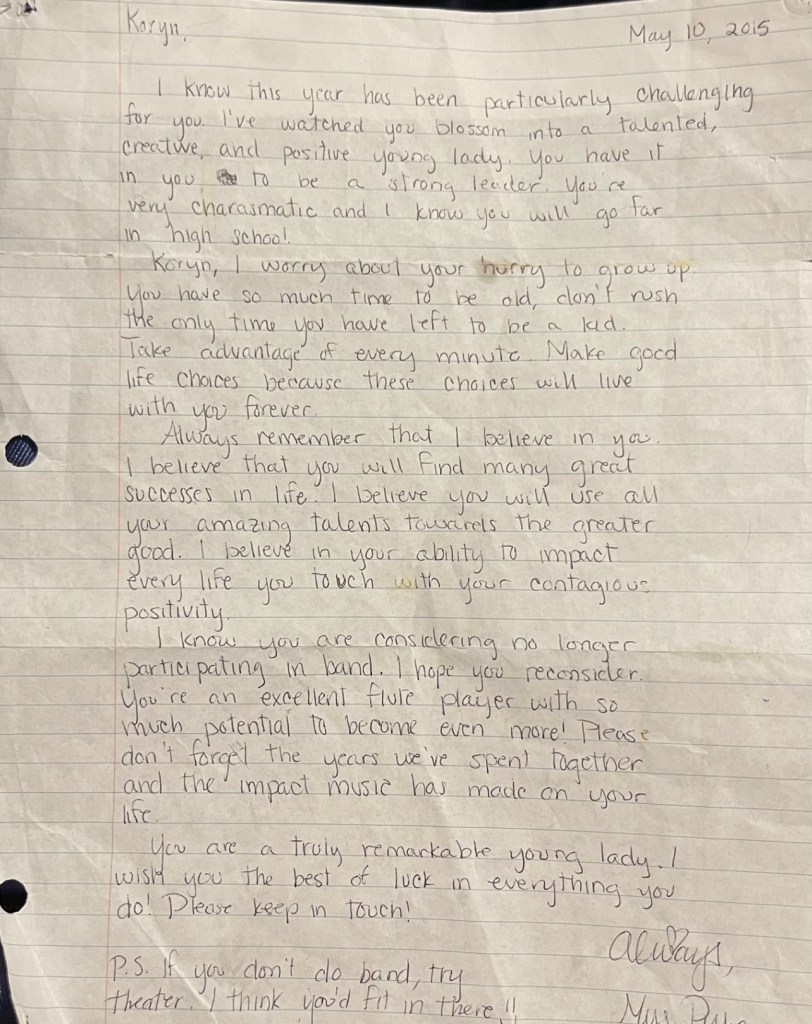 Koryn,
May 10, 2015
I know this year has been particularly challenging
for you. I've watched you blossom into a talented,
creative, and positive young lady. You have it
in you to be a strong leader. You're
very charasmatic and I know you will go far
in high school.
Koryn, I worry about your hurry to grow up.
You have so much time to be old, don't rush
the only time you have left to be a kid.
Take advantage of every minute. Make good
life choices because these choices will live
with you forever.
Always remember that I believe in you.
I believe that you will find many great
successes in life. I believe you will use all
your amazing talents towards the greater
good. I believe in your ability to impact
every life you touch with your contagious
positivity.
I know you are considering no longer
participating in band. I hope you reconsider.
You're an excellent flute player with so
much potential to become even more! Please
don't forget the years we've spent together
and the impact music has made on your
life.
You are a truly remarkable young lady. I
wish you the best of luck in everything you
do! Please keep in touch!
Always,
P.S. If you don't do band, try
theater. I think you'd fit in there!!